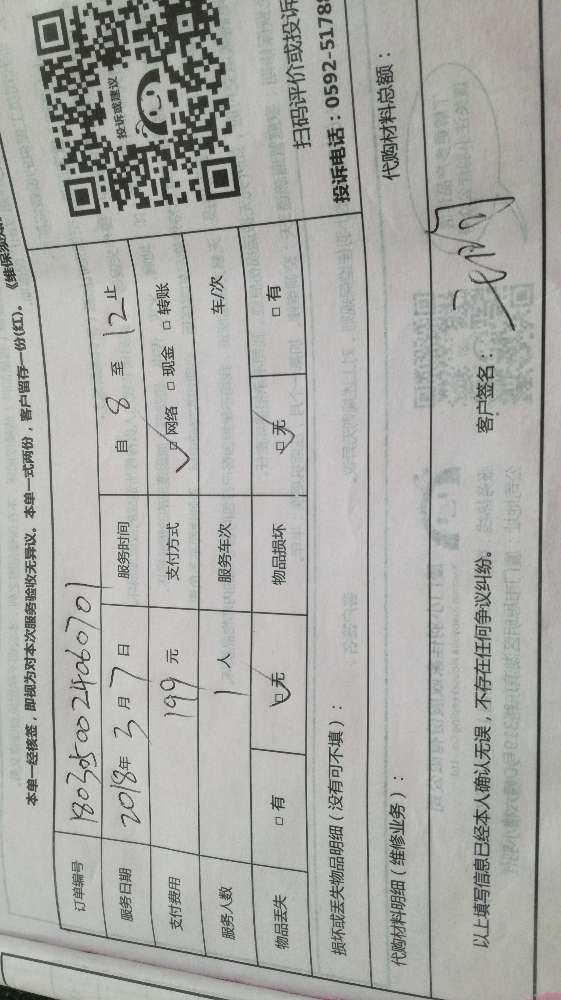 本单一经核签，即视为对本次服务验收无异议。本单一式两份，客户留存一份(红)。《维保须
订单编号 1803050024060701
服务日期 2018年3月7日 服务时间 自 8 至 12 止
支付费用 199 元 支付方式 ☑网络 □现金 □转账
服务人数 1 人 服务车次 车/次
物品丢失 □有 ☑无 物品损坏 ☑无 □有
投诉或建议
扫码评价或投诉
投诉电话：0592-5178
损坏或丢失物品明细（没有可不填）：
代购材料明细（维修业务）： 代购材料总额：
以上填写信息已经本人确认无误，不存在任何争议纠纷。 客户签名：